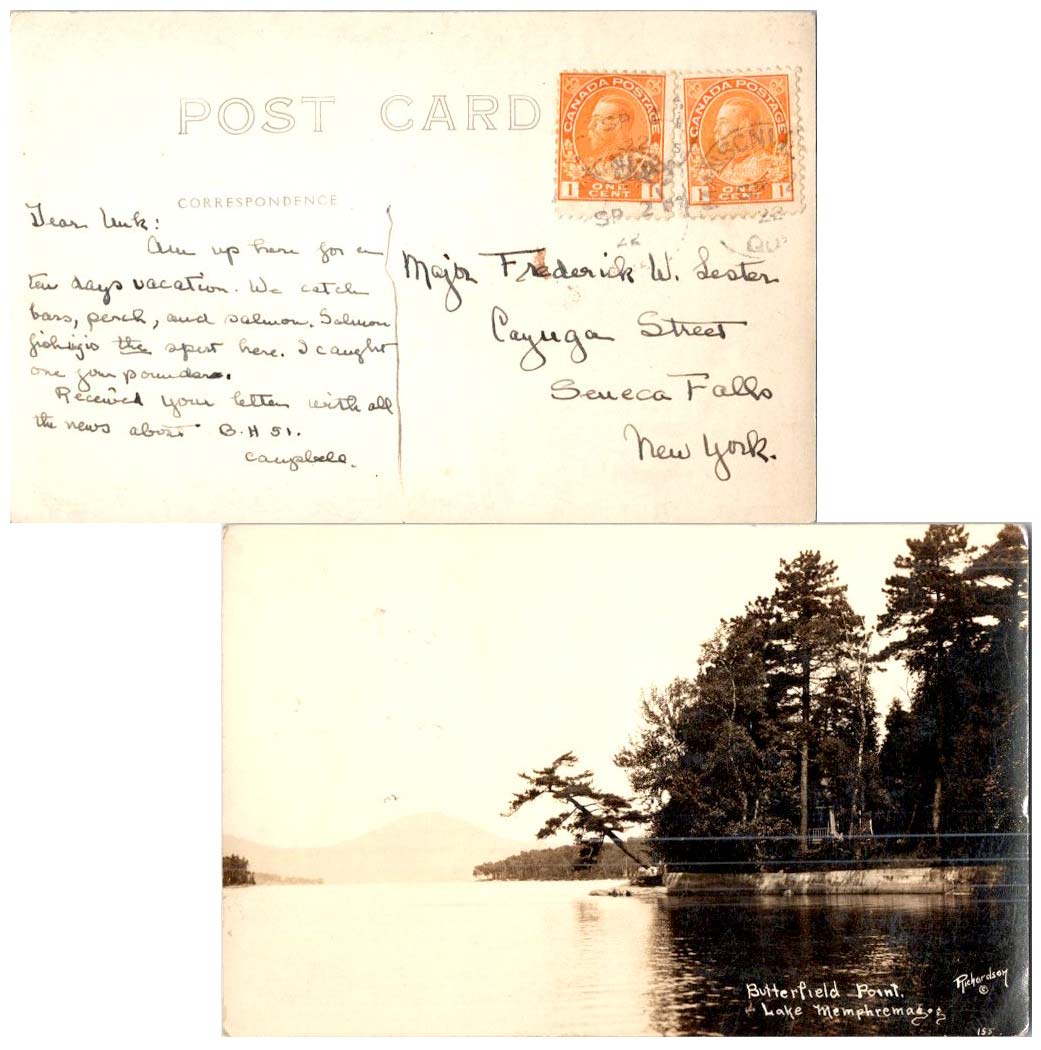 POST CARD
CANADA POSTAGE
1 ONE CENT 1
CANADA POSTAGE
1 ONE CENT 1
SP 2
22
28
QUE
CORRESPONDENCE
Dear Unk:
Am up here for a
ten days vacation. We catch
bass, perch, and salmon. Salmon
fishing is the sport here. I caught
one four pounder.
Received your letter with all
the news about B.H 51.
Campbell.
Major Frederick W. Lester
Cayuga Street
Seneca Falls
New York.
Richardson
©
Butterfield Point.
Lake Memphremagog
155